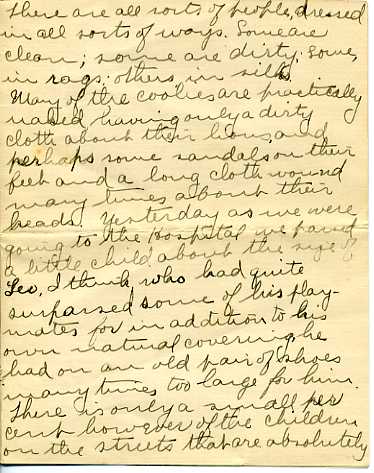 There are all sorts of people, dressed
in all sorts of ways. Some are
clean; some are dirty; some,
in rags; others, in silk.
Many of the coolies are practically
naked having only a dirty
cloth about their loins, and
perhaps some sandals on their
feet and a long cloth wound
many times about their
heads. Yesterday as we were
going to the Hospital we passed
a little child about the size of
Leo, I think, who had quite
surpassed some of his play-
mates for in addition to his
own natural covering he
had on an old pair of shoes
many times too large for him.
There is only a small per
cent however of the children
on the streets that are absolutely